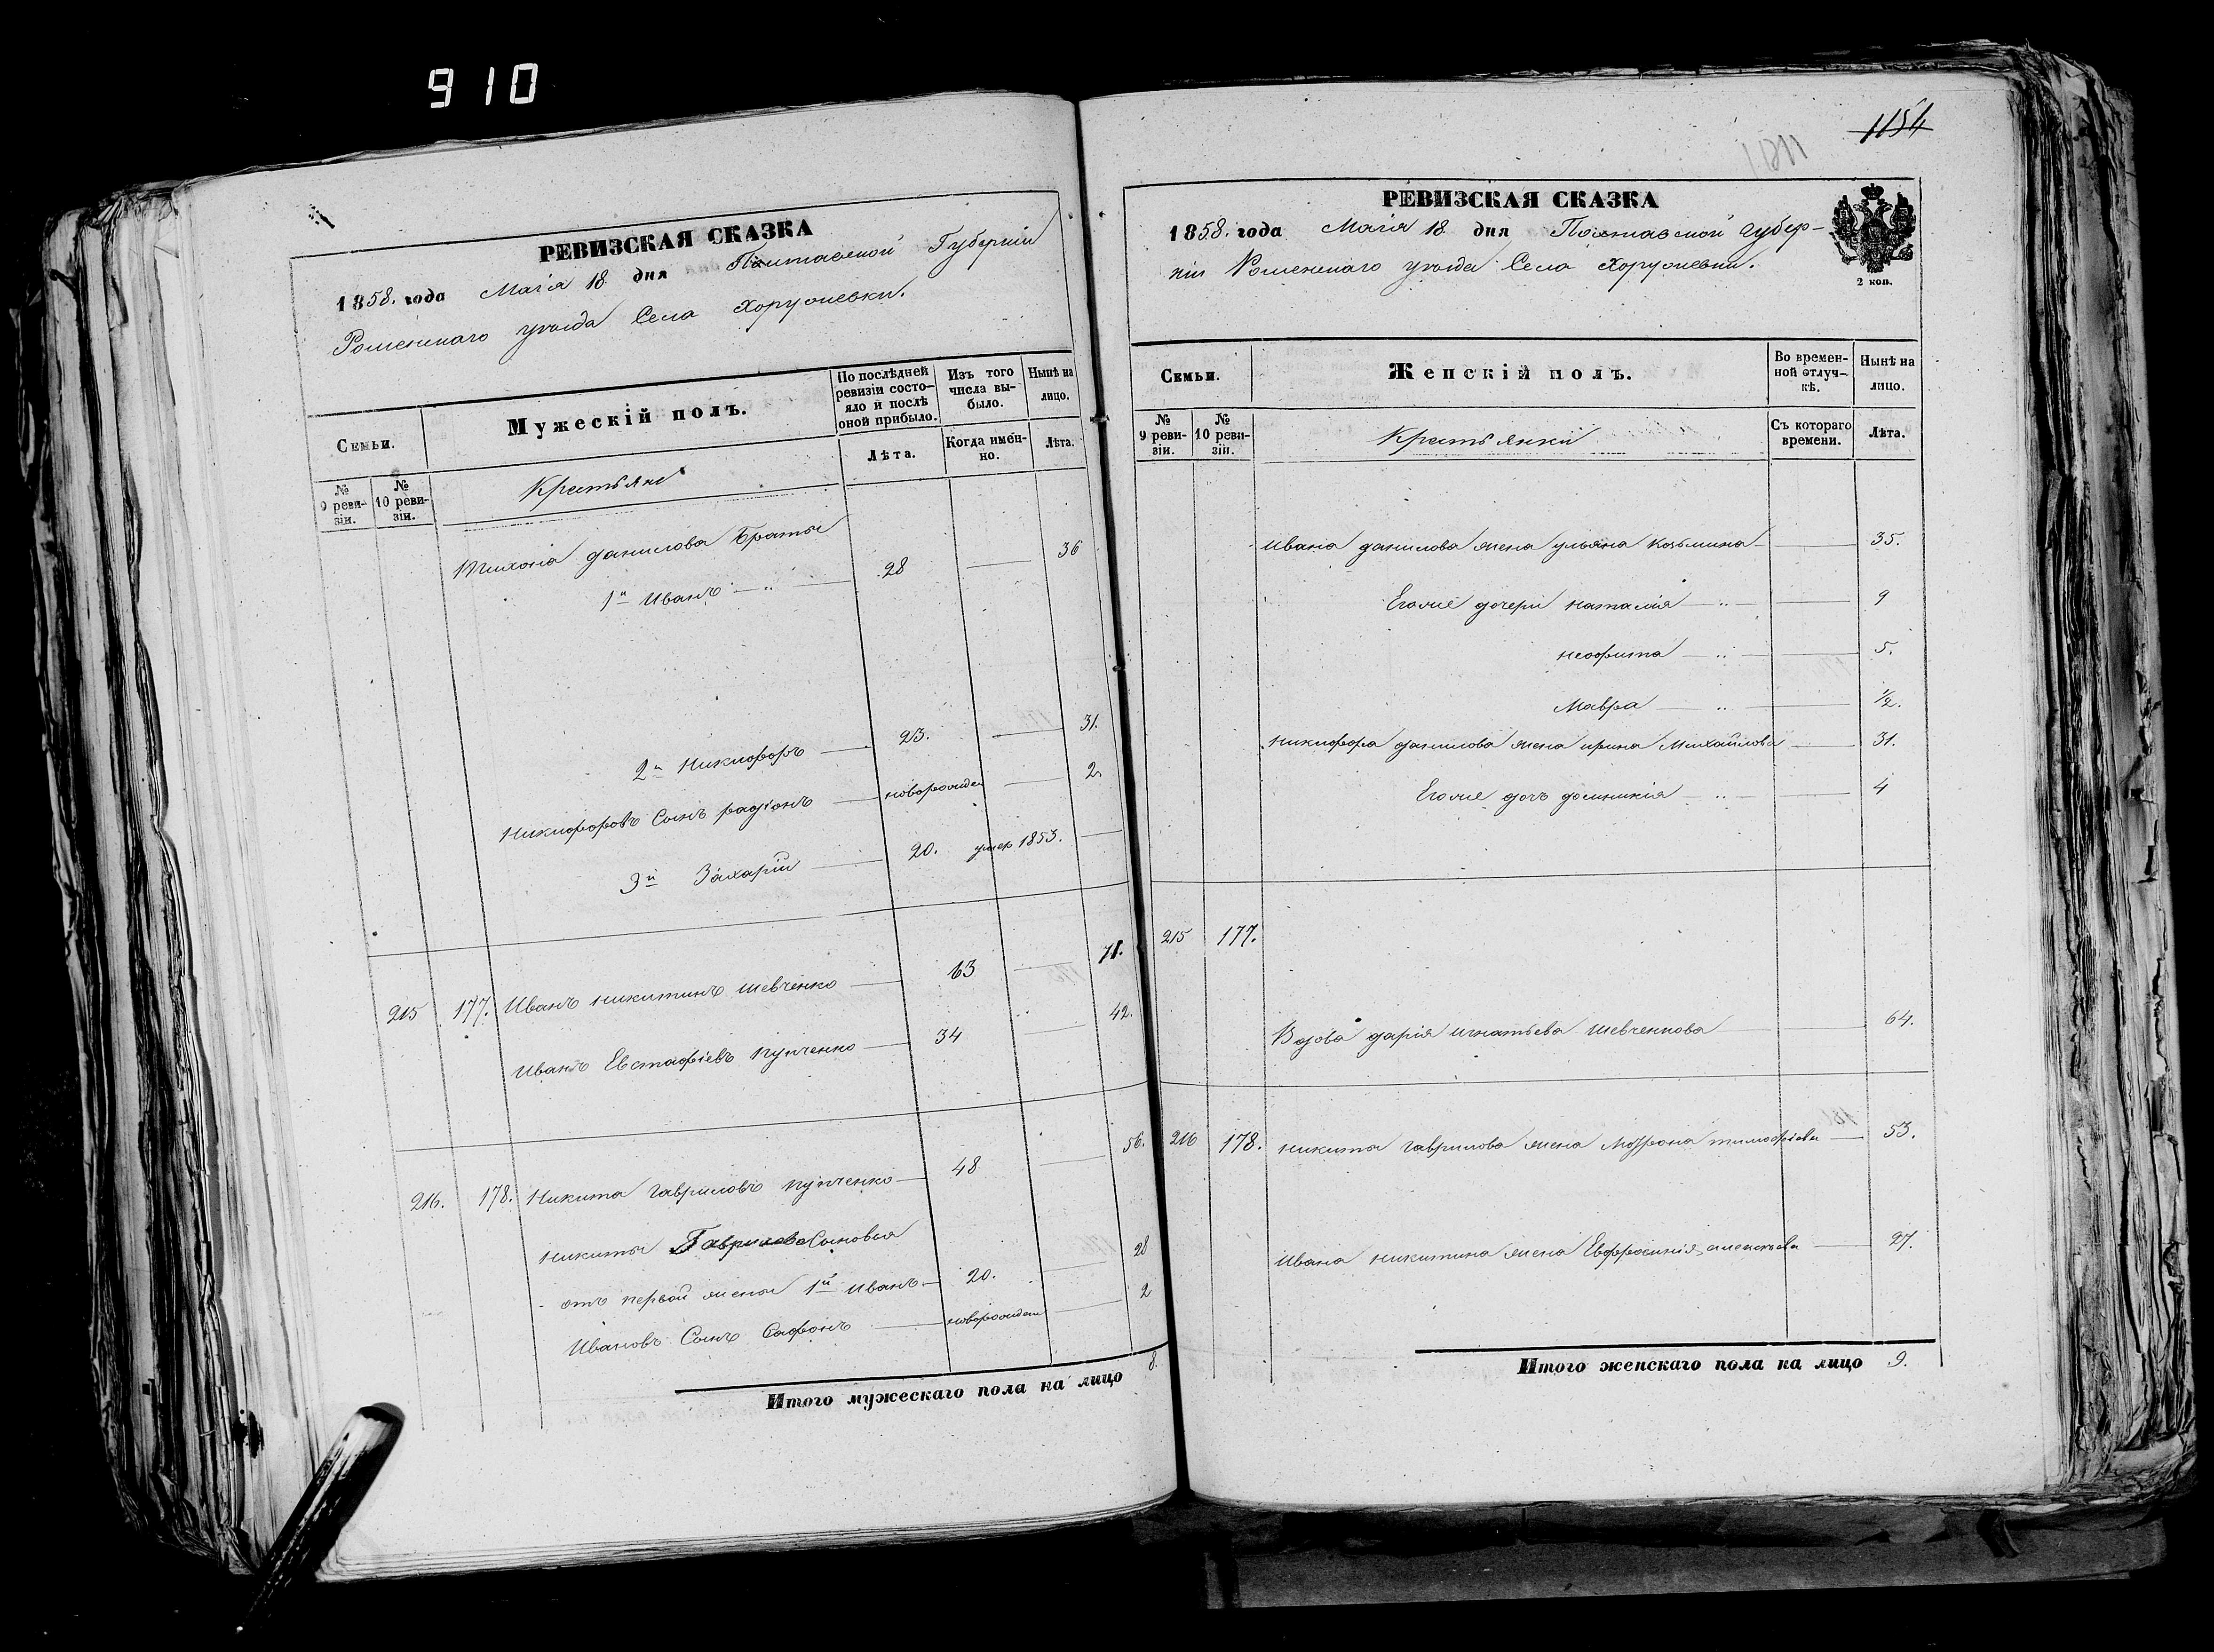 910
РЕВИЗСКАЯ СКАЗКА
1858. года Маія 18 дня Полтавской Губерніи
Роменскаго уѣзда Села Хоружевки.
Семьи.
Мужескій полъ.
По послѣдней ревизіи состояло и послѣ оной прибыло.
Изъ того числа выбыло.
Нынѣ на лицо.
№ 9 ревизіи.
№ 10 ревизіи.
Крестьяне
Лѣта.
Когда именно.
Лѣта.
Тихона данилова Братья
1й Иванъ 28 36
2й Никифоръ 23. 31.
Никифоровъ Сынъ радіонъ новорожден 2
3й Захарій 20. умер 1853.
215 177. Иванъ никитинъ шевченко 63 71.
Иванъ Евстафіевъ Купченко 34 42.
216. 178. Никита гавриловъ Купченко 48 56.
Никиты Гаврилова Сыновья
отъ первой жены 1й Иванъ 20. 28
Ивановъ Сынъ Сафонъ новорожден 2
Итого мужескаго пола на лицо 8.
1154
РЕВИЗСКАЯ СКАЗКА
1858. года Маія 18 дня Полтавской губер-
ніи Роменскаго уѣзда Села Хоружевки.
2 коп.
Семьи.
Женскій полъ.
Во временной отлучкѣ.
Нынѣ на лицо.
№ 9 ревизіи.
№ 10 ревизіи.
Крестьянки
Съ котораго времени.
Лѣта.
Ивана данилова жена ульяна Козьмина 35.
Егоже дочери наталія 9
неофита 5.
Мавра ½.
Никифора данилова жена ирина Михайлова 31.
Егоже дочь домникія 4
215 177.
Вдова дарія игнатьева шевченкова 64.
216 178. никиты гаврилова жена Мотрона тимофѣева 53.
Ивана никитина жена Евфросинія алексѣева 27.
Итого женскаго пола на лицо 9.